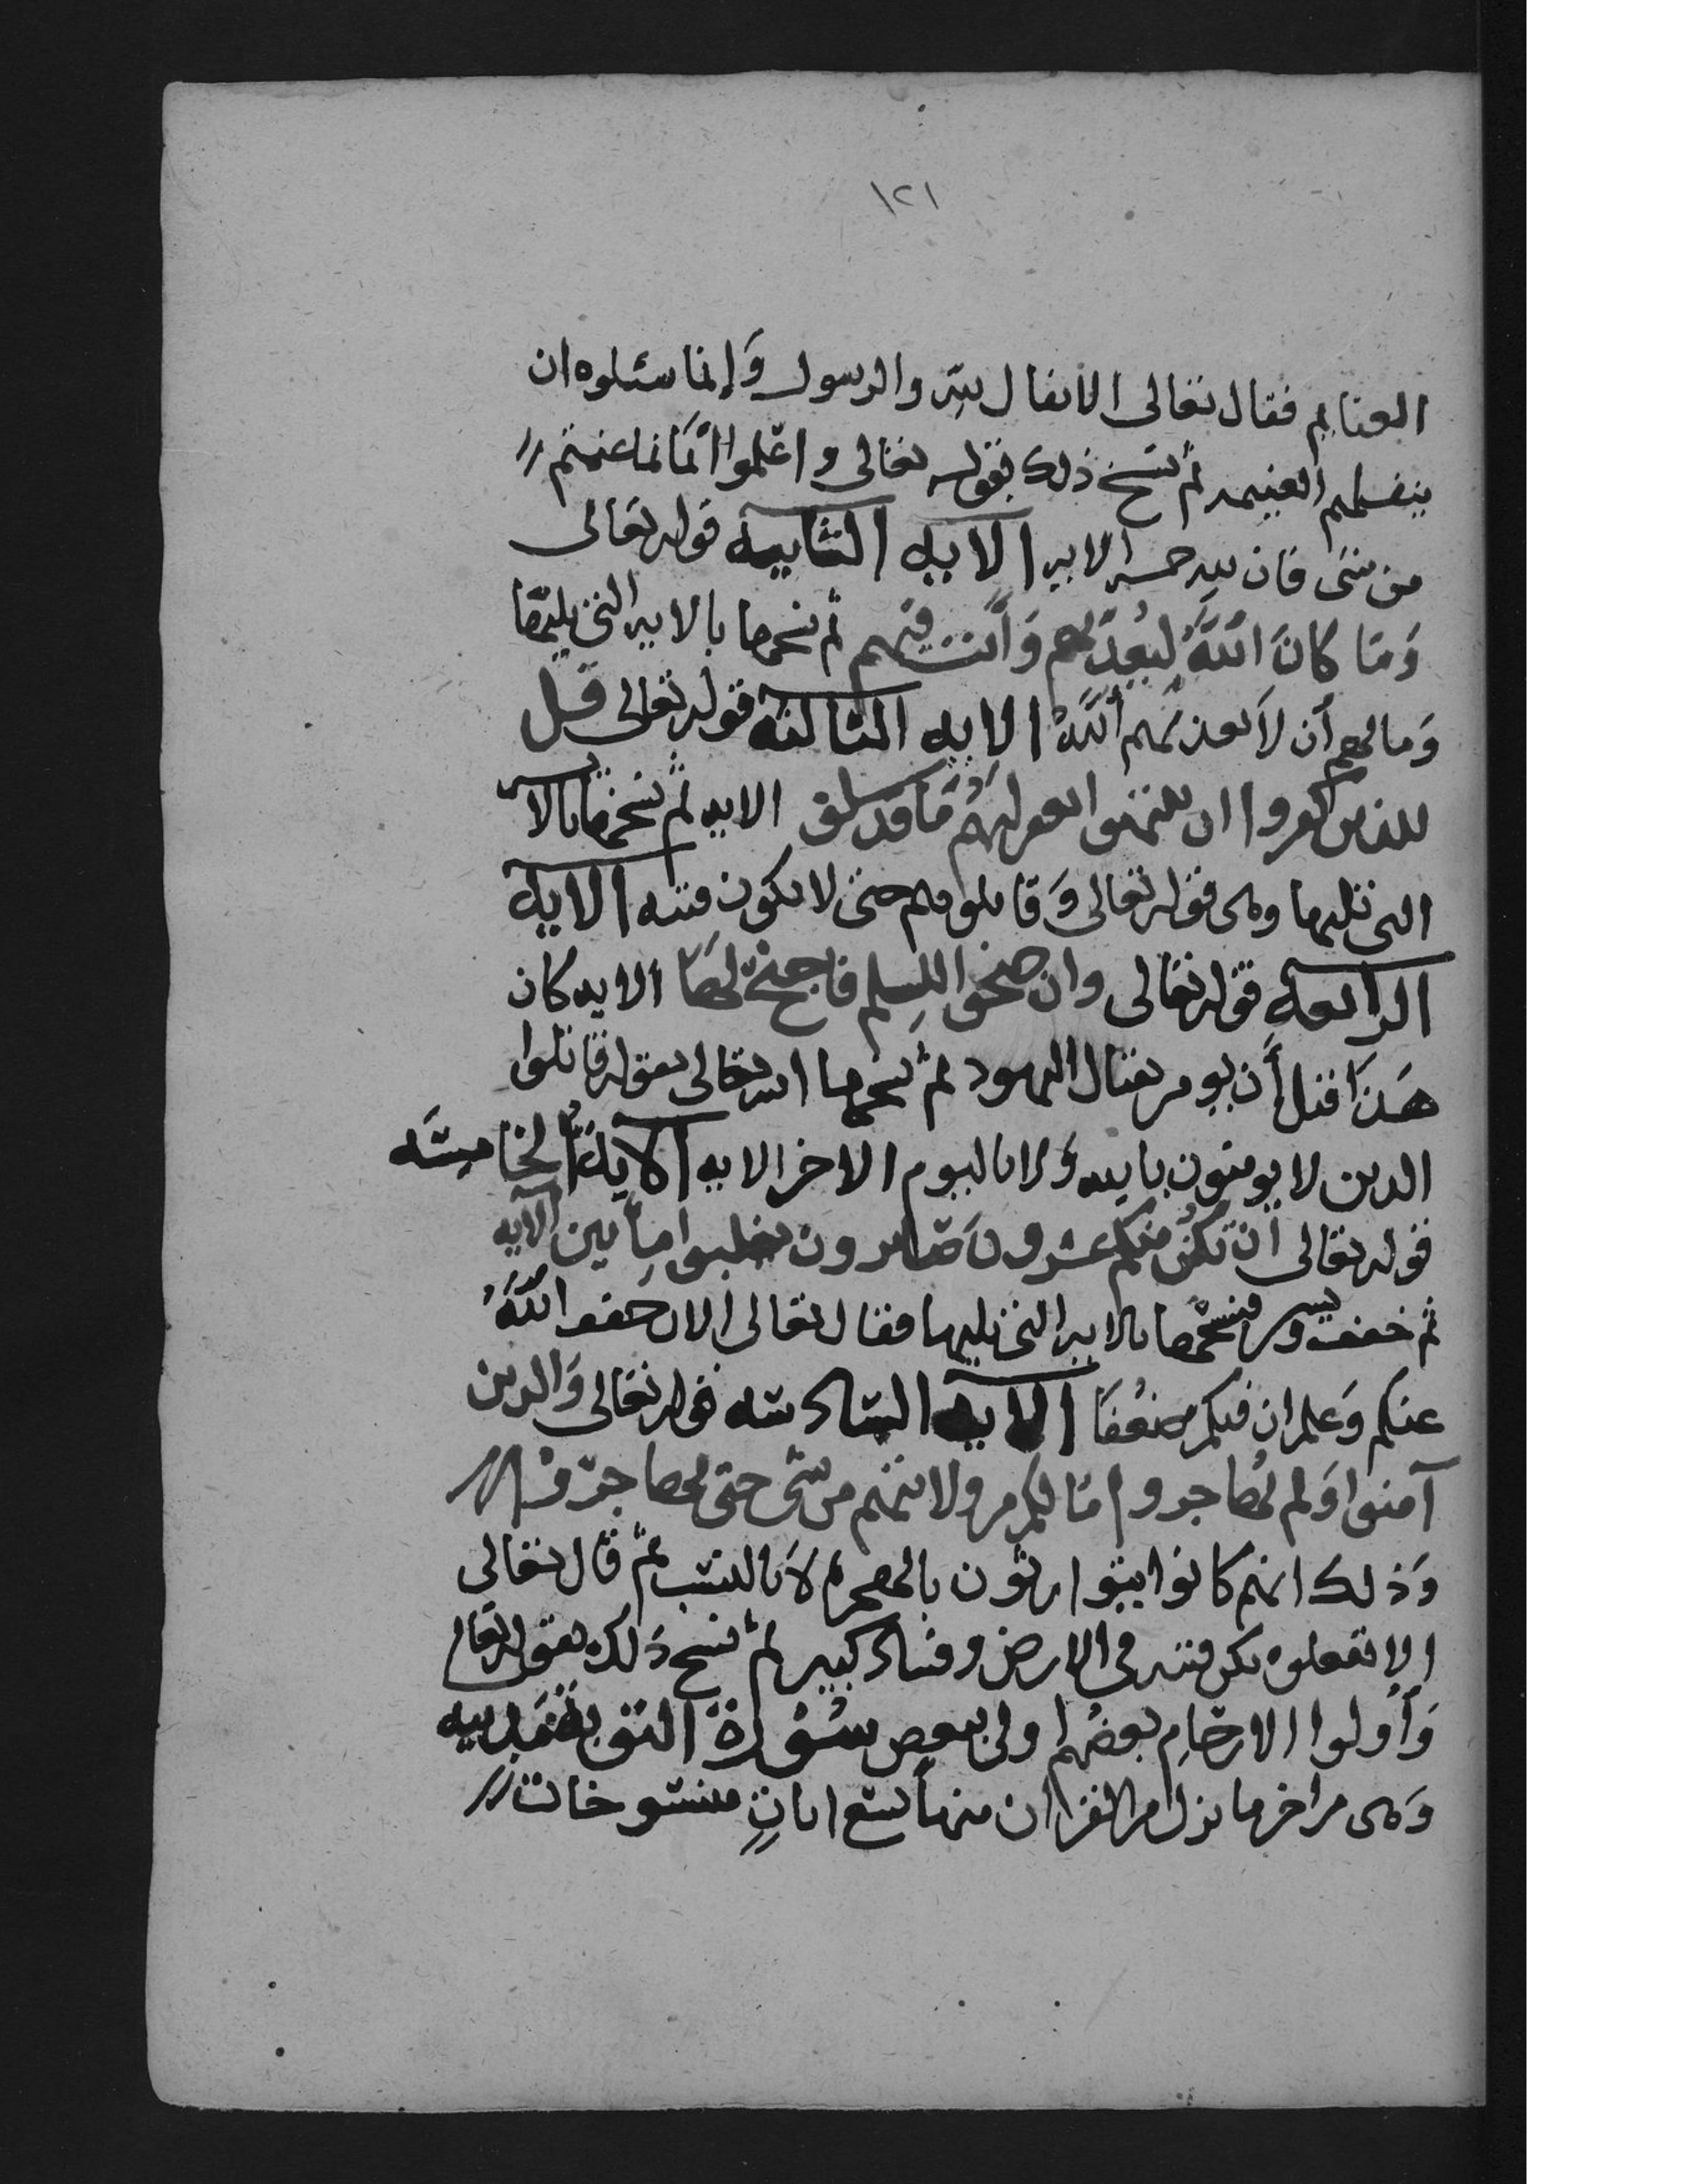 ١٢١
الغنايم فقال تعالى الانفال لله والرسول وَإنما سئلوه ان
ينفلهم الغنيمه ثم نسخ ذلك بقوله تعالى واعْلموا انما غنمتم
من شى فان لله خمسه الايه الايه الثانيه قوله تعالى
وَمَا كانَ اللَّهُ ليُعذبَهم وَأَنت فيهم ثم نسخها بالايه التى تليهَا
وَمالهم أن لاَ يعذبَهم اللَّهُ الايه الثالثه قوله تعالى قل
للذين كفروا ان ينتهوا يغفر لهُم مَا قد سلف الايه ثم نسخها بالايه
التى تليها وهى قوله تعالى وَقاتلوهم حتى لا تكون فتنه الايه
الرابعه قوله تعالى وان جنحوا للسِلم فاجنح لهَا الايه كان
هَذَا قبل أَن يومر بقتال اليهود ثم نسخها الله تعالى بقوله قاتلوا
الذين لا يومنون بالله وَلا باليوم الاخر الايه الايةُ الخامسَه
قوله تعالى ان تكُن منكم عشرون صَابرون يغلبوا مِأتين الايه
ثم خفف ويسر فنسخها بالايه التى تليها فقال تعالى الان خفف اللَّهُ
عنكم وَعلم ان فيكم ضعْفا الايه السادسَه قوله تعالى وَالذين
آمنوا وَلم يُهَاجروا مَا لكم من ولايتهم من شى حتى يهاجرُوا
وَذلك انهم كانوا يتوارثون بالهجره لاَ بالنسَب ثم قال تعالى
الا تفعلوه تكن فتنه فى الارض وفسَاد كبير ثم نسخ ذلك بقوله تعالى
وَأُولوا الارحَامِ بعضُهم اولى ببعض سُوْرَة التوبة مَدنيه
وَهى من اخر ما نزل من القران منها تسع اياتٍ منسوخات